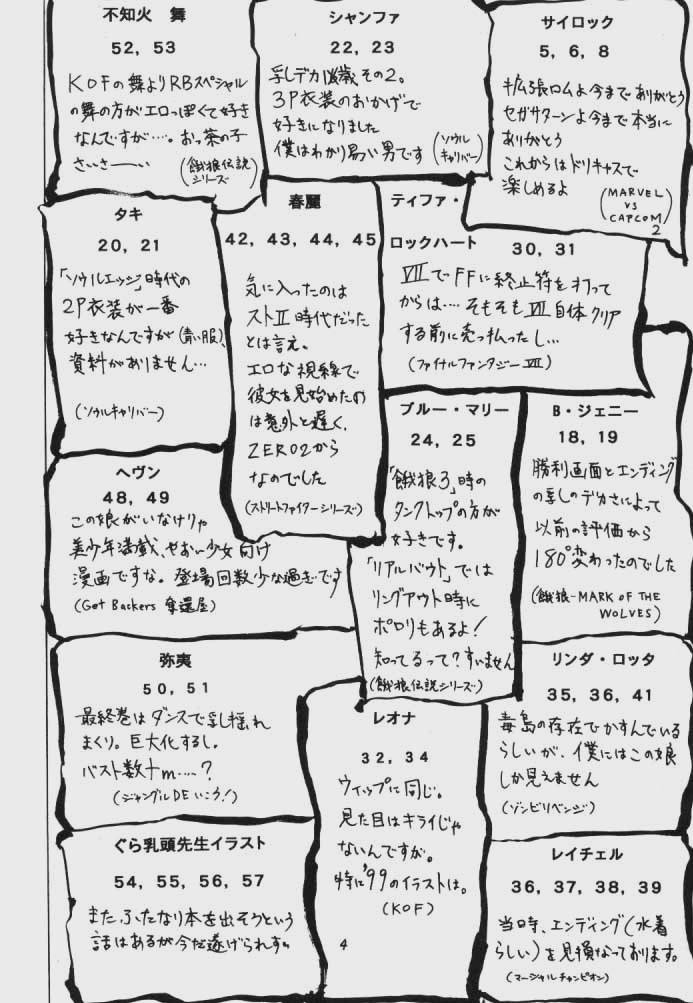 不知火　舞
52, 53
KOFの舞よりRBスペシャル
の舞の方がエロっぽくて好き
なんですが…。おっ茶の子
さいさーーい
(餓狼伝説
シリーズ)
シャンファ
22, 23
3P衣装のおかげで
好きになりました
僕はわかり易い男です
(ソウル
キャリバー)
サイロック
5, 6, 8
拡張ロムよ今までありがとう
セガサターンよ今まで本当に
ありがとう
これからはドリキャスで
楽しめるよ
(MARVEL
VS
CAPCOM
2)
タキ
20, 21
「ソウルエッジ」時代の
2P衣装が一番
好きなんですが(青い服)、
資料がありません…
(ソウルキャリバー)
春麗
42, 43, 44, 45
気に入ったのは
ストⅡ時代だった
とは言え。
エロな視線で
彼女を見始めたの
は意外と遅く、
ZERO2から
なのでした
(ストリートファイターシリーズ)
ティファ・
ロックハート
30, 31
ⅦでFFに終止符を打って
からは…. そもそもⅦ自体クリア
する前に売っ払ったし…
(ファイナルファンタジーⅦ)
ブルー・マリー
24, 25
「餓狼3」時の
タンクトップの方が
好きです。
「リアルバウト」では
リングアウト時に
ポロリもあるよ！
知ってるって？すいません
(餓狼伝説シリーズ)
B・ジェニー
18, 19
勝利画面とエンディング
の乳のデカさによって
以前の評価から
180°変わったのでした
(餓狼-MARK OF THE
WOLVES)
ヘヴン
48, 49
この娘がいなけりゃ
美少年満載、やおい少女向け
漫画ですな。登場回数少な過ぎです
(Get Backers 奪還屋)
弥夷
50, 51
最終巻はダンスで乳揺れ
まくり。巨大化するし。
バスト数十m….？
(ジャングルDEいこう！)
レオナ
32, 34
ウィップに同じ。
見た目はキライじゃ
ないんですが。
特に'99のイラストは。
(KOF)
リンダ・ロッタ
35, 36, 41
毒島の存在でかすんでいる
らしいが、僕にはこの娘
しか見えません
(ゾンビリベンジ)
ぐら乳頭先生イラスト
54, 55, 56, 57
また、ふたなり本を出そうという
話はあるが今だ遂げられず。
レイチェル
36, 37, 38, 39
当時、エンディング(水着
らしい)を見損なっております。
(マーシャルチャンピオン)
4